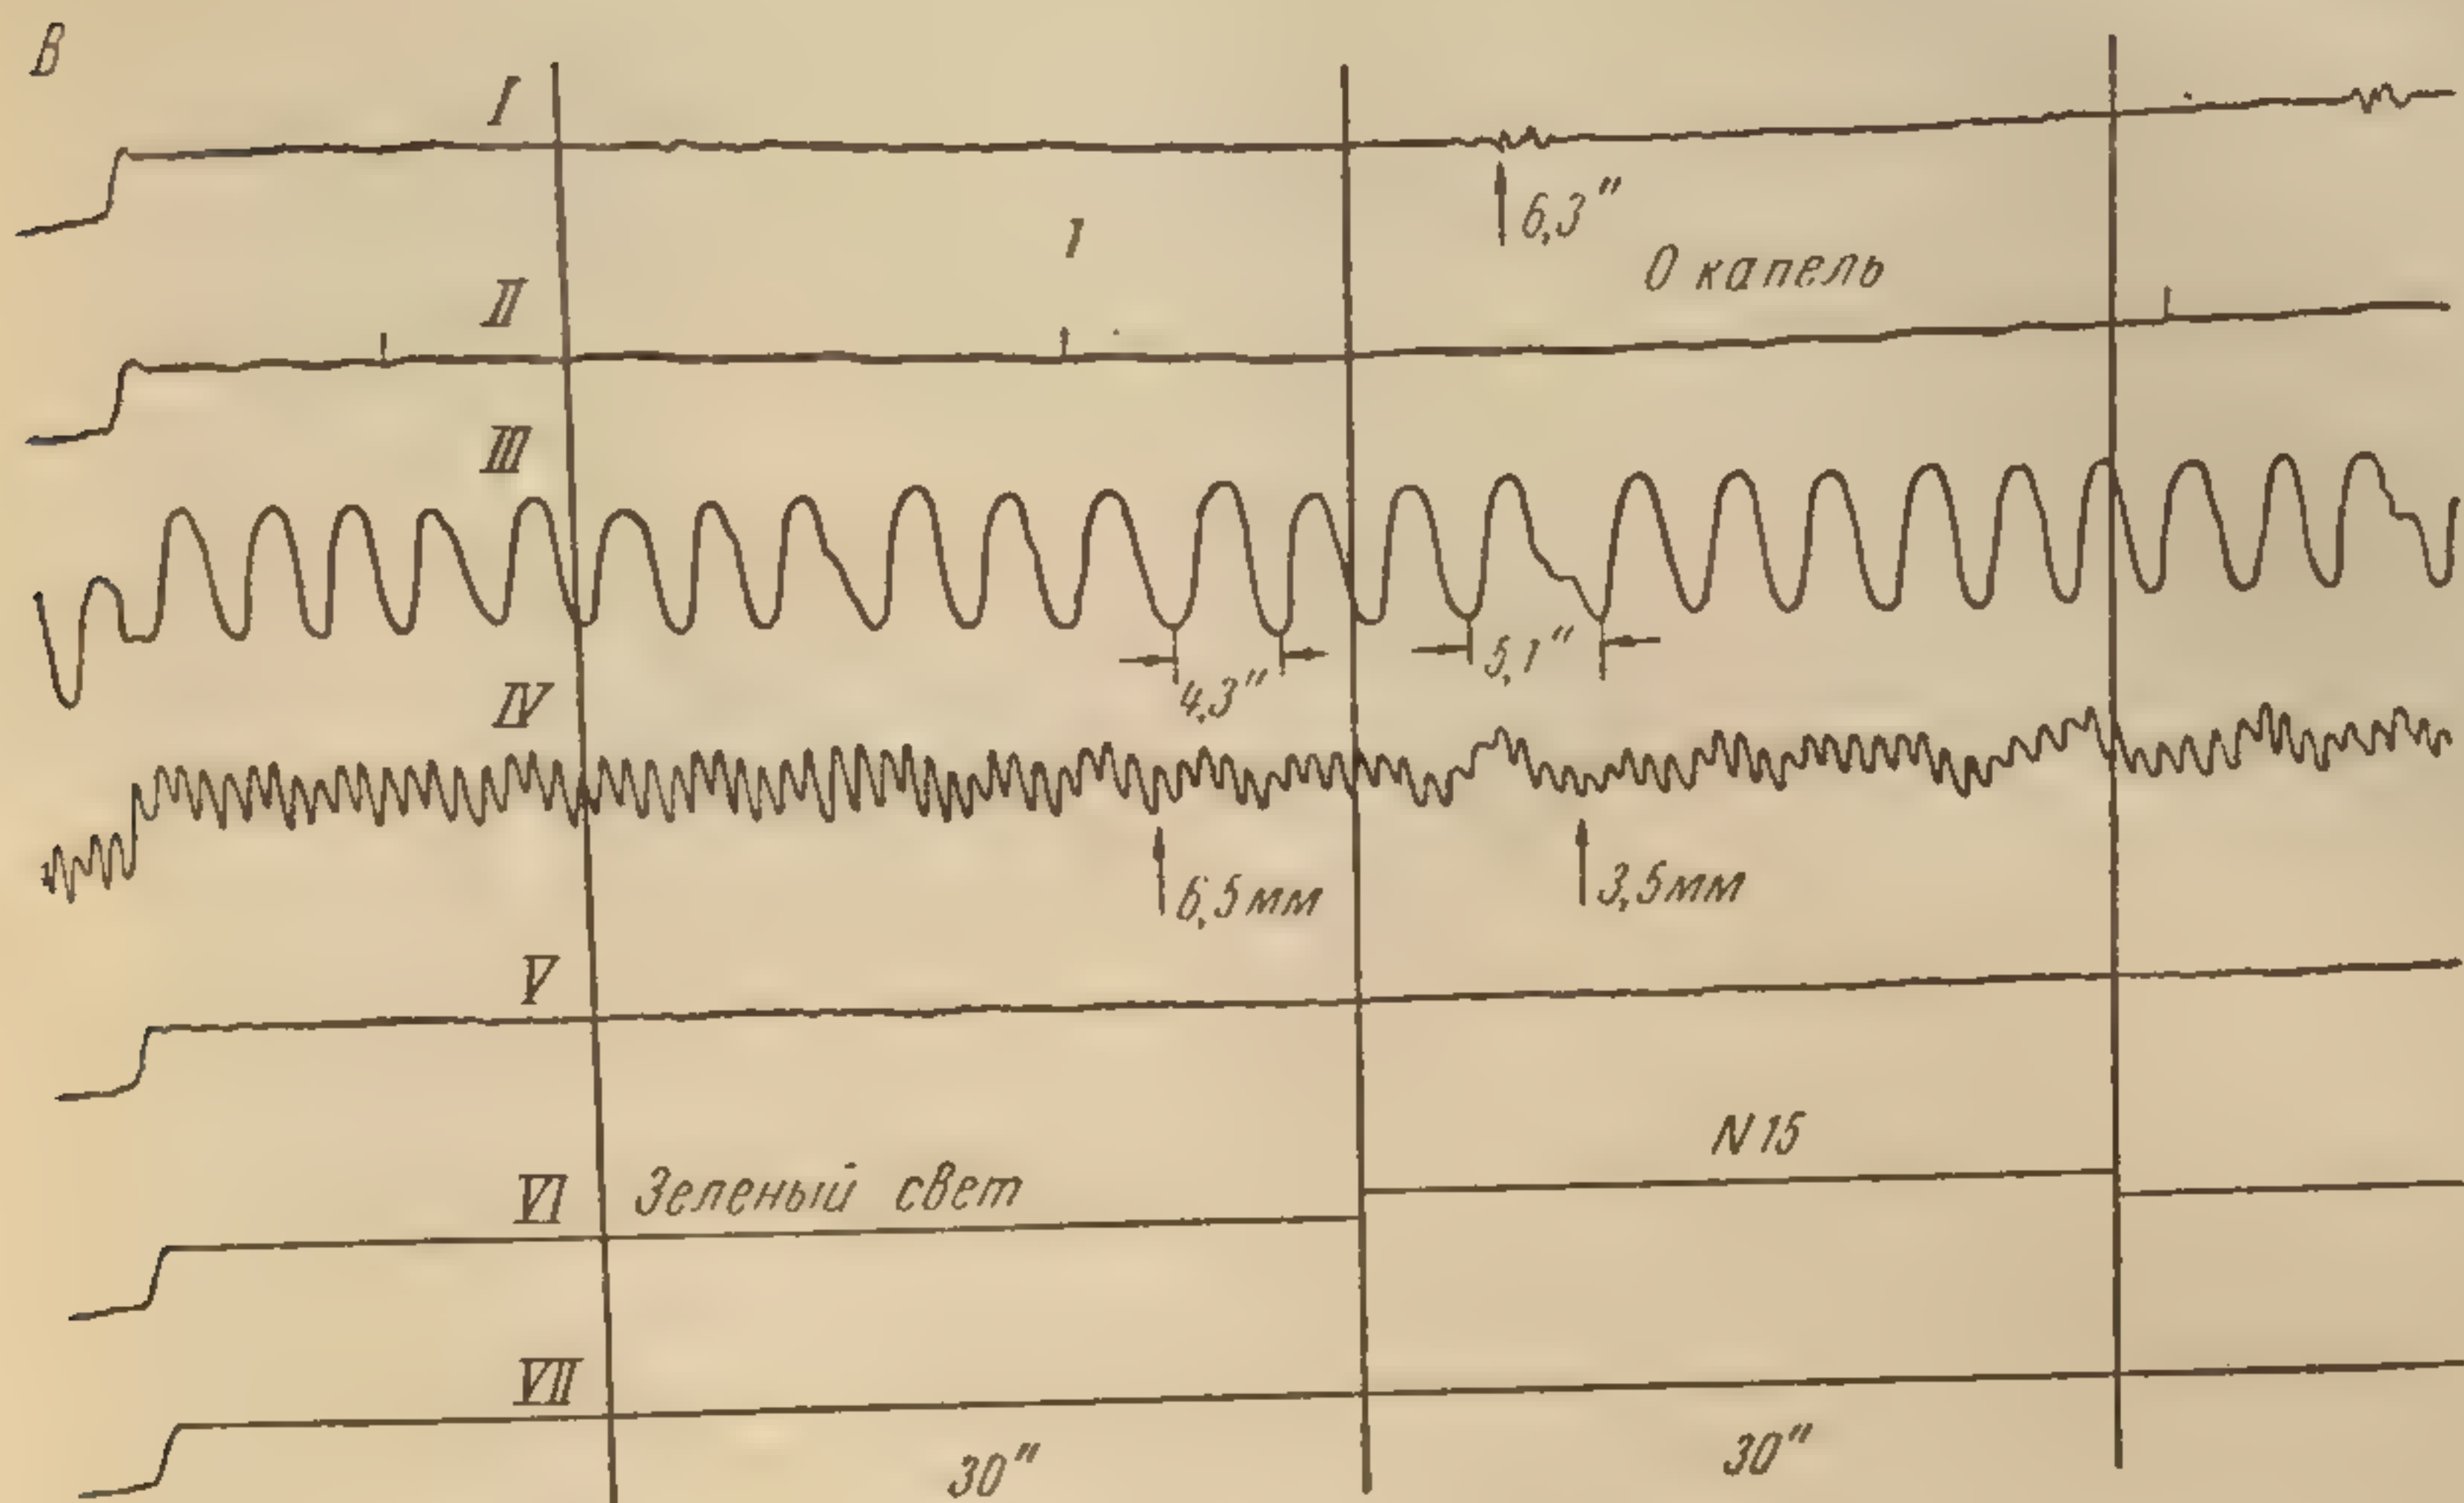 В
I
6,3"
1
II
0 капель
III
4,3"
5,1"
IV
6,5 мм
3,5 мм
V
N 15
VI
Зеленый свет
VII
30"
30"